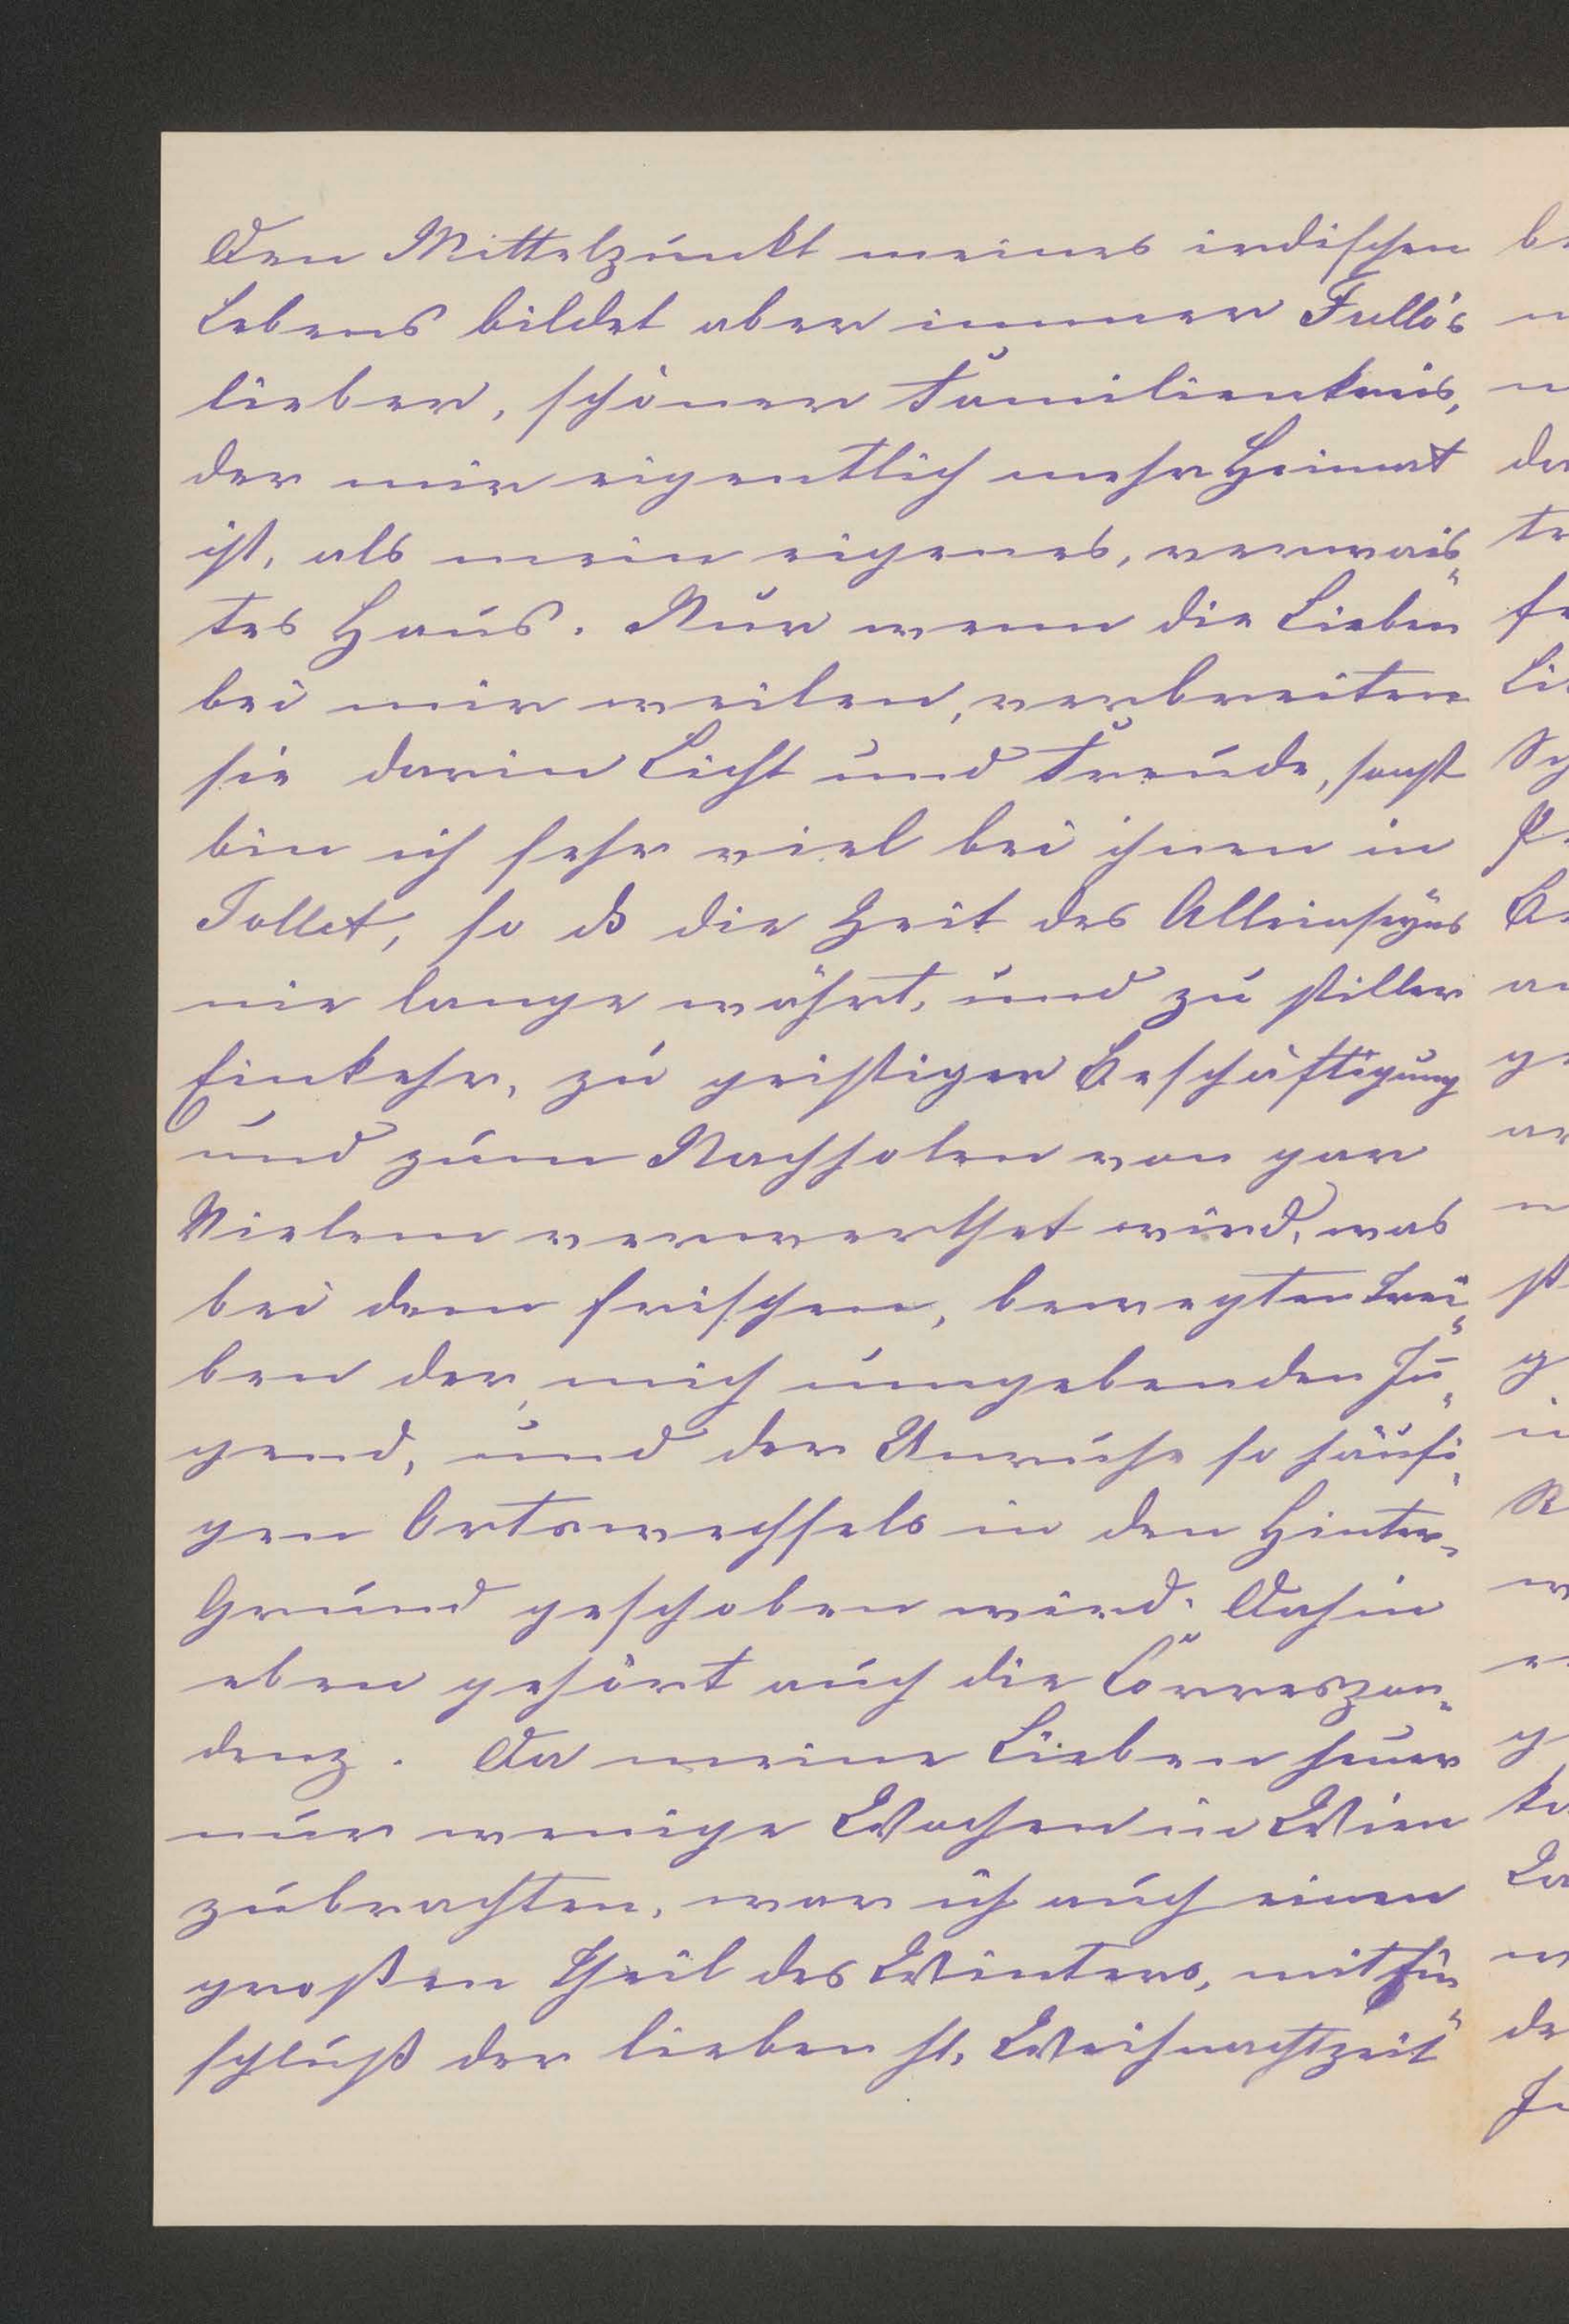 Den Mittelpunkt meines irdischen
Lebens bildet aber immer Fullo's
lieber, schöner Familienkreis,
der mir eigentlich mehr Heimat
ist, als mein eigenes, verwais„
tes Haus. Nur wenn die Lieben
bei mir weilen, verbreiten
sie darin Licht und Freude, sonst
bin ich sehr viel bei ihnen in
Tollet, so dß die Zeit des Alleinseÿns
nie lange währt, und zu stiller
Einkehr, zu geistiger Beschäftigung
und zum Nachholen von gar
Vielem verwerthet wird, was
bei dem frischen, bewegten Trei„
ben der, mich umgebenden Ju„
gend, und der Unruhe so häufi„
gen Ortswechsels in den Hinter„
Grund geschoben wird. Dahin
eben gehört auch die Correspon„
denz. Da meine Lieben heuer
nur wenige Wochen in Wien
zubrachten, war ich auch einen
großen Theil des Winters, mit Ein„
schluß der lieben hl. Weihnachtzeit